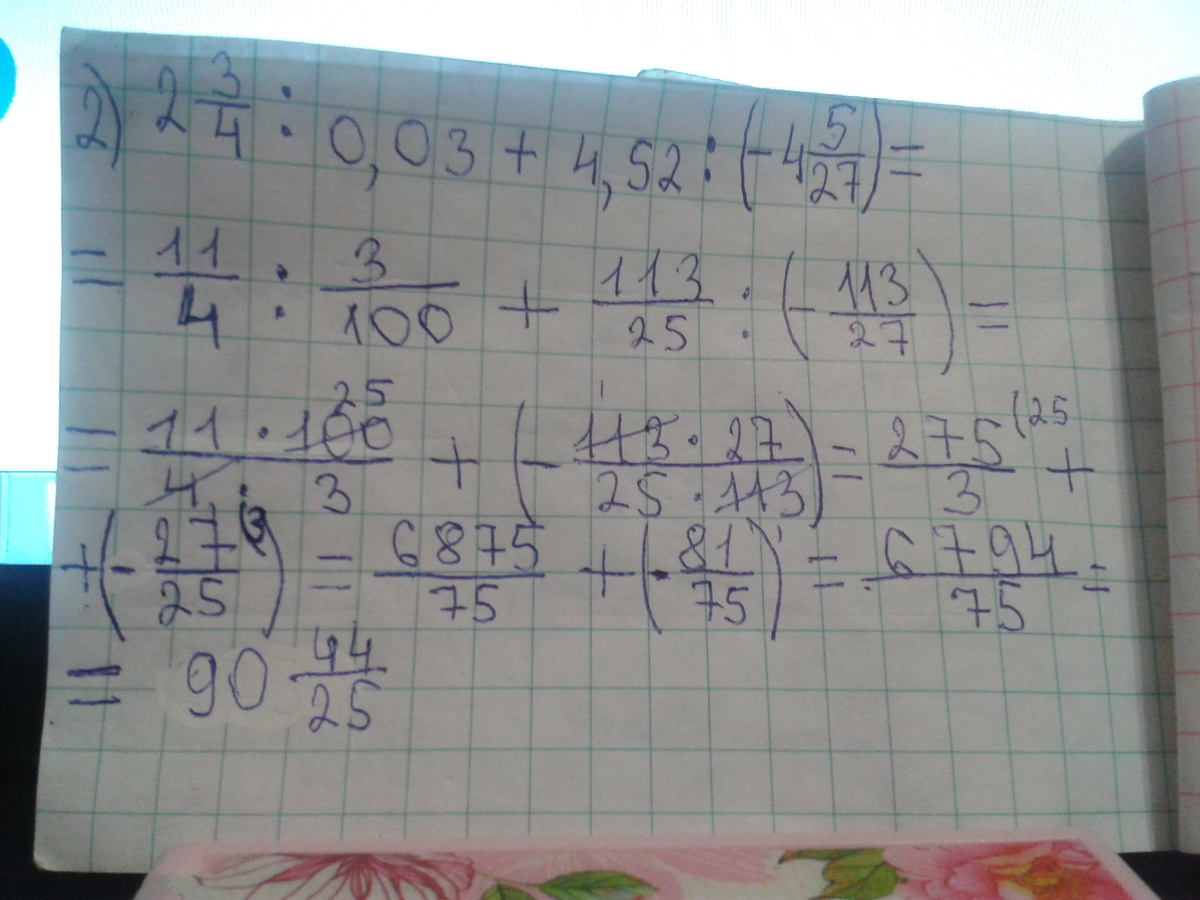 2) 2 3/4 : 0,03 + 4,52 : (-4 5/27) =
= 11/4 : 3/100 + 113/25 : (- 113/27) =
= 11 · 100 25 / 4 · 3 + (- 113 1 · 27 / 25 · 113) = 275/3 (25 +
+ (- 27/25 (3) = 6875/75 + (- 81/75) = 6794/75 =
= 90 44/25